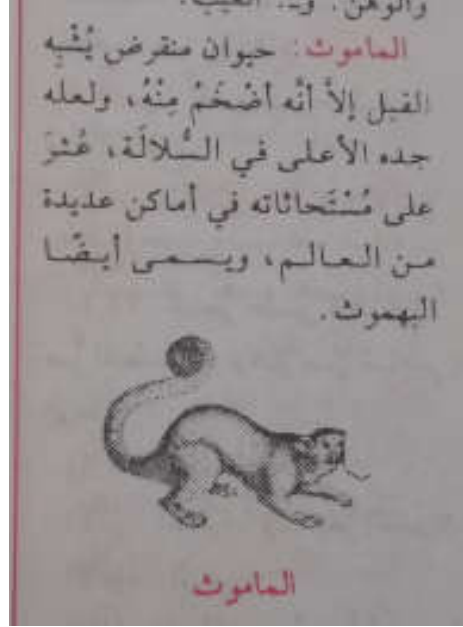 والوهن. و‍ـ: العيب.
الماموث: حيوان منقرض يُشْبِه
الفيل إلاَّ أنَّه أضْخَمُ مِنْهُ، ولعله
جده الأعلى في السُّلالَة، عُثرَ
على مُسْتَحاثاته في أماكن عديدة
من العالم، ويسمى أيضًا
البهموث.
الماموث